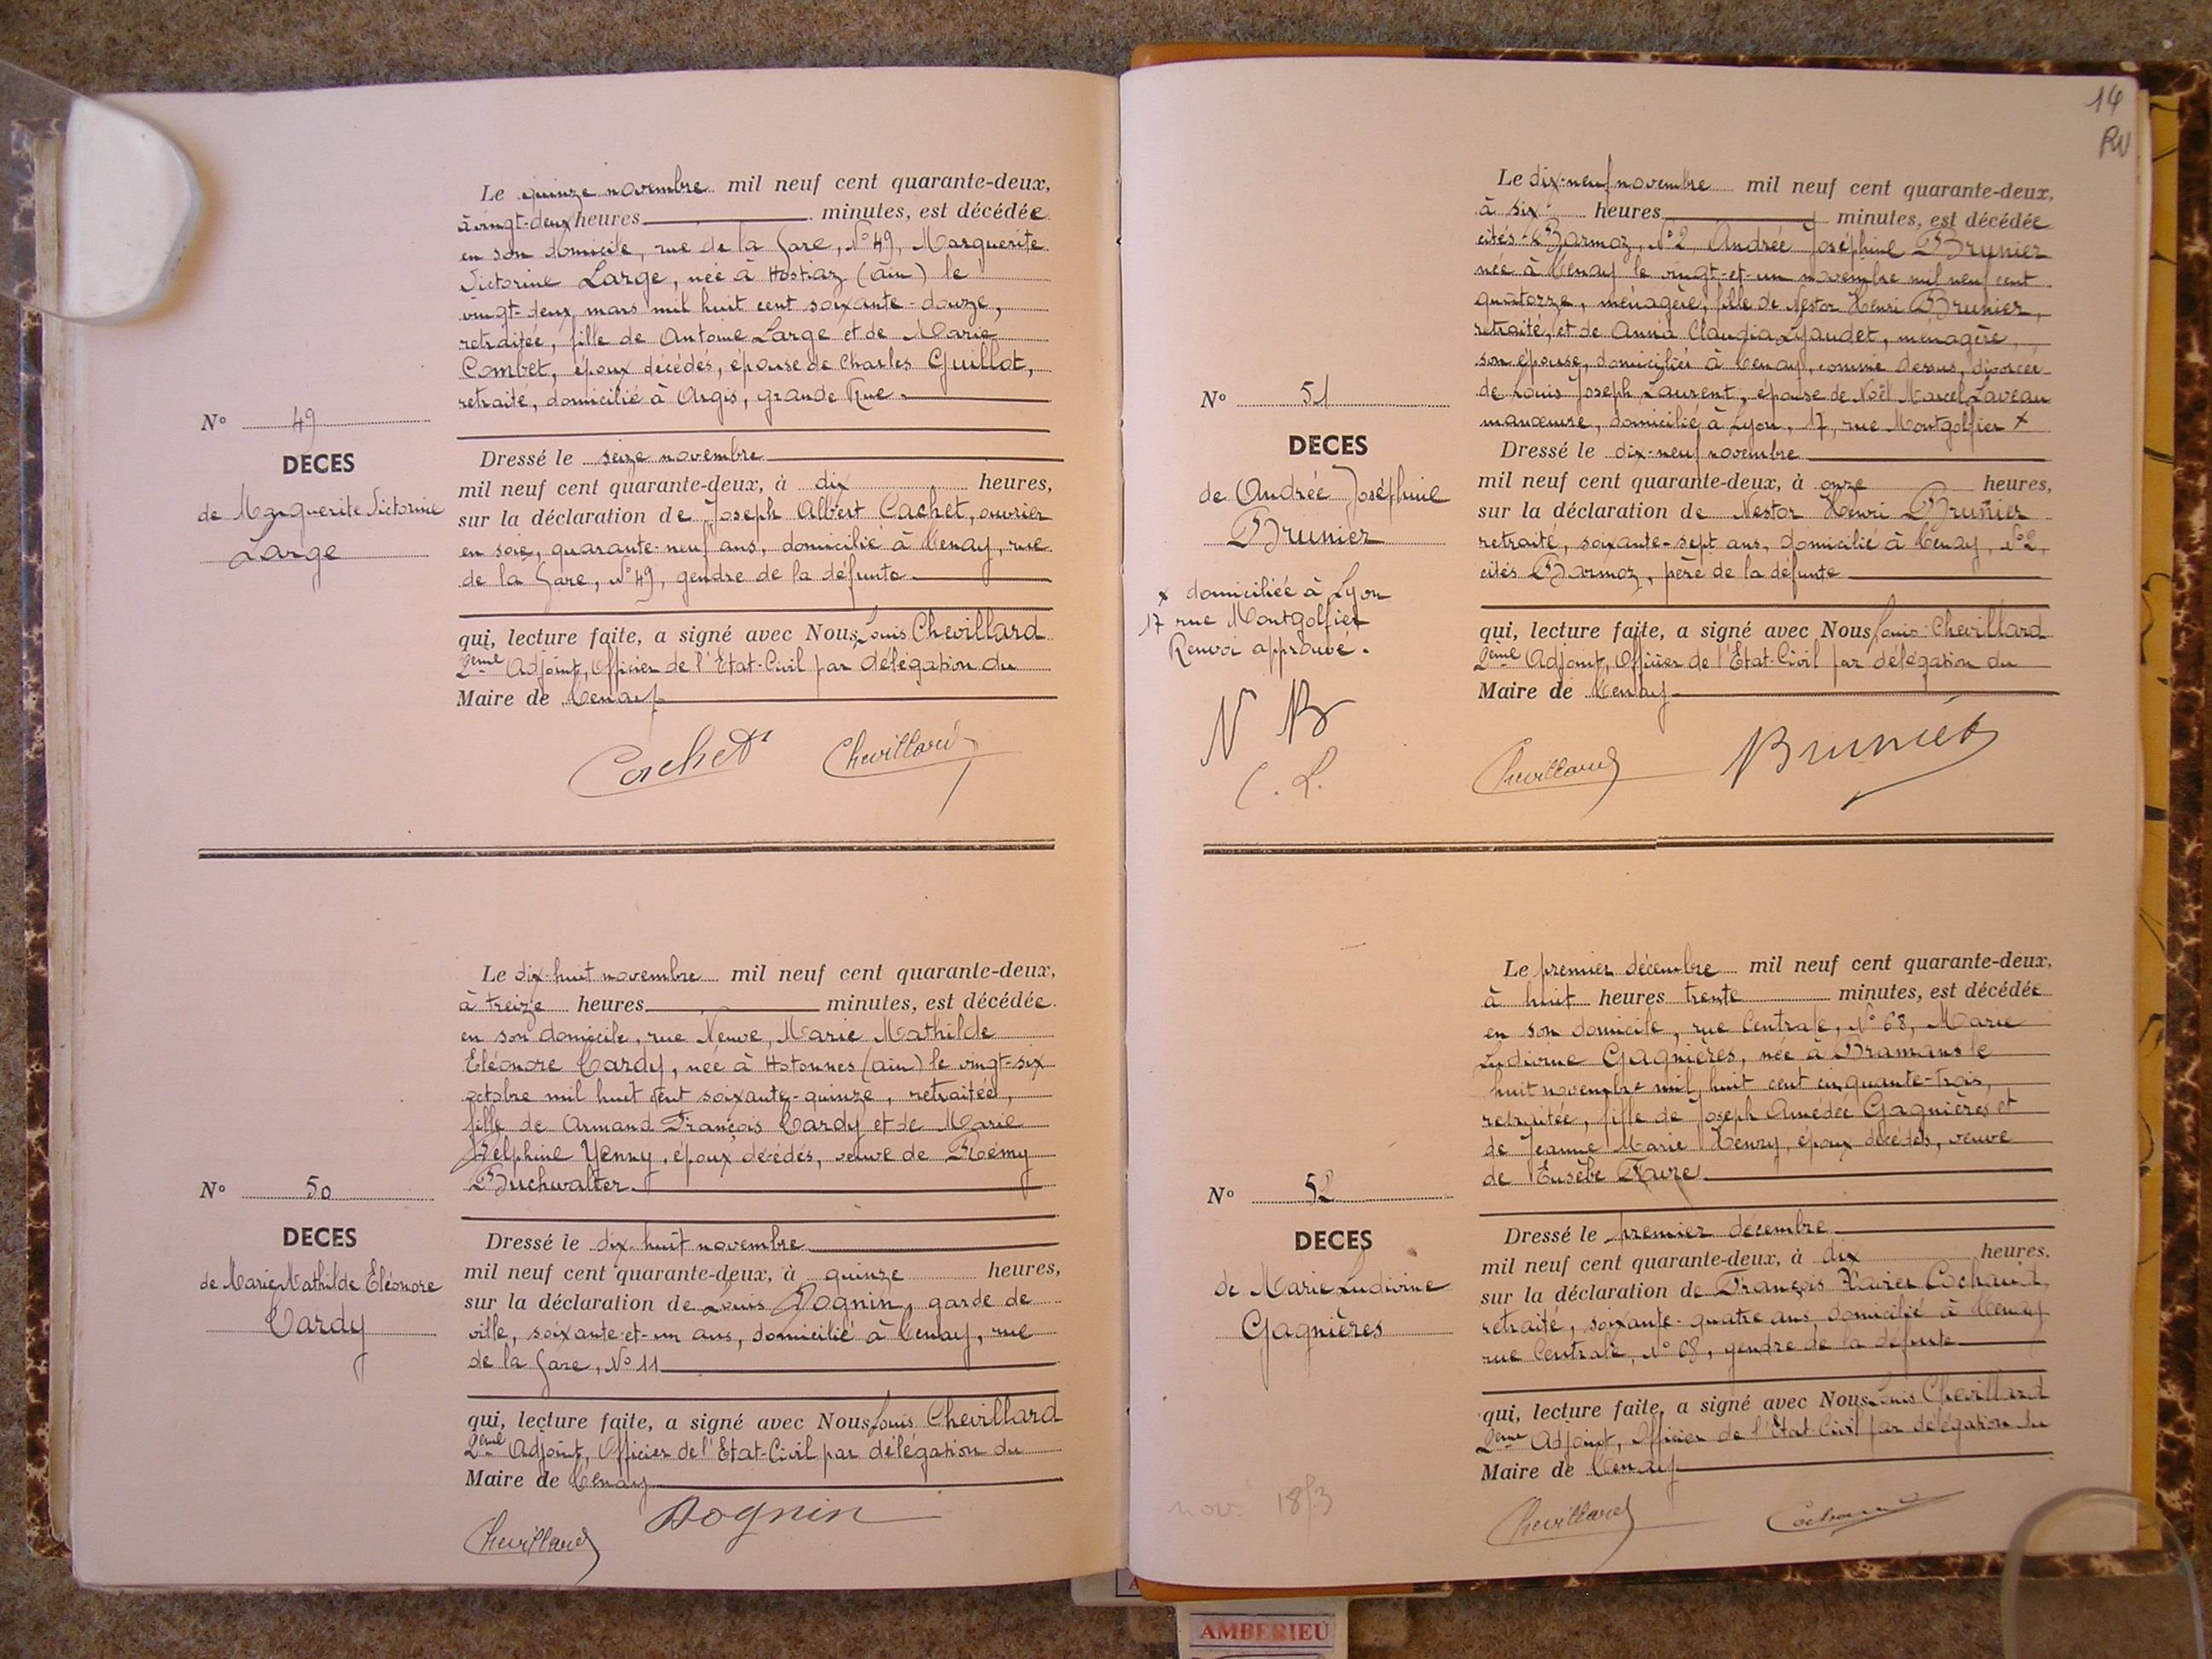 Le quinze novembre mil neuf cent quarante-deux,
à vingt-deux heures minutes, est décédée
en son domicile, rue de la Gare, N° 49, Marguerite
Victorine Large, née à Hostiaz (ain) le
vingt-deux mars mil huit cent soixante-douze,
retraitée, fille de Antoine Large et de Marie
Combet, époux décédés, épouse de Charles Guillot,
retraité, domicilié à Argis, grande Rue.
N° 49
DECES
de Marguerite Victorine
Large
Dressé le seize novembre
mil neuf cent quarante-deux, à dix heures,
sur la déclaration de Joseph Albert Cachet, ouvrier
en soie, quarante-neuf ans, domicilié à Tenay, rue
de la Gare, N° 49, gendre de la défunte
qui, lecture faite, a signé avec Nous Louis Chevillard
2ème Adjoint, Officier de l'Etat-Civil par délégation du
Maire de Tenay
Cachet Chevillard
Le dix-huit novembre mil neuf cent quarante-deux,
à treize heures minutes, est décédée
en son domicile, rue Neuve, Marie Mathilde
Eléonore Tardy, née à Hotonnes (ain) le vingt-six
octobre mil huit cent soixante-quinze, retraitée,
fille de Armand François Tardy et de Marie
Delphine Yenny, époux décédés, veuve de Rémy
Buchwalter.
N° 50
DECES
de Marie Mathilde Eléonore
Tardy
Dressé le dix-huit novembre
mil neuf cent quarante-deux, à quinze heures,
sur la déclaration de Louis Dognin, garde de
ville, soixante-et-un ans, domicilié à Tenay, rue
de la Gare, N° 11
qui, lecture faite, a signé avec Nous Louis Chevillard
2ème Adjoint, Officier de l'Etat-Civil par délégation du
Maire de Tenay
Chevillard Dognin
14
Le dix-neuf novembre mil neuf cent quarante-deux,
à six heures minutes, est décédée
cités Barmoz, N° 2, Andrée Joséphine Brunier
née à Tenay le vingt-et-un novembre mil neuf cent
quatorze, ménagère, fille de Nestor Henri Brunier,
retraité, et de Anna Claudia Gaudet, ménagère,
son épouse, domiciliés à Tenay, comme dessus, divorcée
de Louis Joseph Laurent, épouse de Noël Marcel Laveau
manœuvre, domicilié à Lyon, 17, rue Montgolfier x
N° 51
DECES
de Andrée Joséphine
Brunier
x domiciliée à Lyon
17 rue Montgolfier
Renvoi approuvé.
N B
C. L.
Dressé le dix-neuf novembre
mil neuf cent quarante-deux, à onze heures,
sur la déclaration de Nestor Henri Brunier
retraité, soixante-sept ans, domicilié à Tenay, N° 2,
cités Barmoz, père de la défunte
qui, lecture faite, a signé avec Nous Louis Chevillard
2ème Adjoint, Officier de l'Etat-Civil par délégation du
Maire de Tenay
Chevillard Brunier
Le premier décembre mil neuf cent quarante-deux,
à huit heures trente minutes, est décédée
en son domicile, rue Centrale, N° 68, Marie
Ludivine Gagnières, née à Bramans le
huit novembre mil huit cent cinquante-trois,
retraitée, fille de Joseph Amédée Gagnières et
de Jeanne Marie Henry, époux décédés, veuve
de Eusèbe Favre.
N° 52
DECES
de Marie Ludivine
Gagnières
Dressé le premier décembre
mil neuf cent quarante-deux, à dix heures,
sur la déclaration de François Xavier Cochaud,
retraité, soixante-quatre ans, domicilié à Tenay
rue Centrale, N° 68, gendre de la défunte
qui, lecture faite, a signé avec Nous Louis Chevillard
2ème Adjoint, Officier de l'Etat-Civil par délégation du
Maire de Tenay
nov. 1853
Chevillard
AMBERIEU